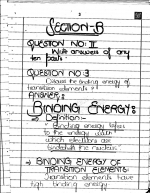 SECTION-B
QUESTION NO: II
Write answers of any
ten parts.
QUESTION NO:3
Discuss the binding energy of
transition elements?
ANSWER:
BINDING ENERGY:
Definition:-
Binding energy refers
to the energy
which electrons are
the nucleus.
BINDING ENERGY OF
TRANSITION ELEMENTS:
Transition elements have
high binding energy